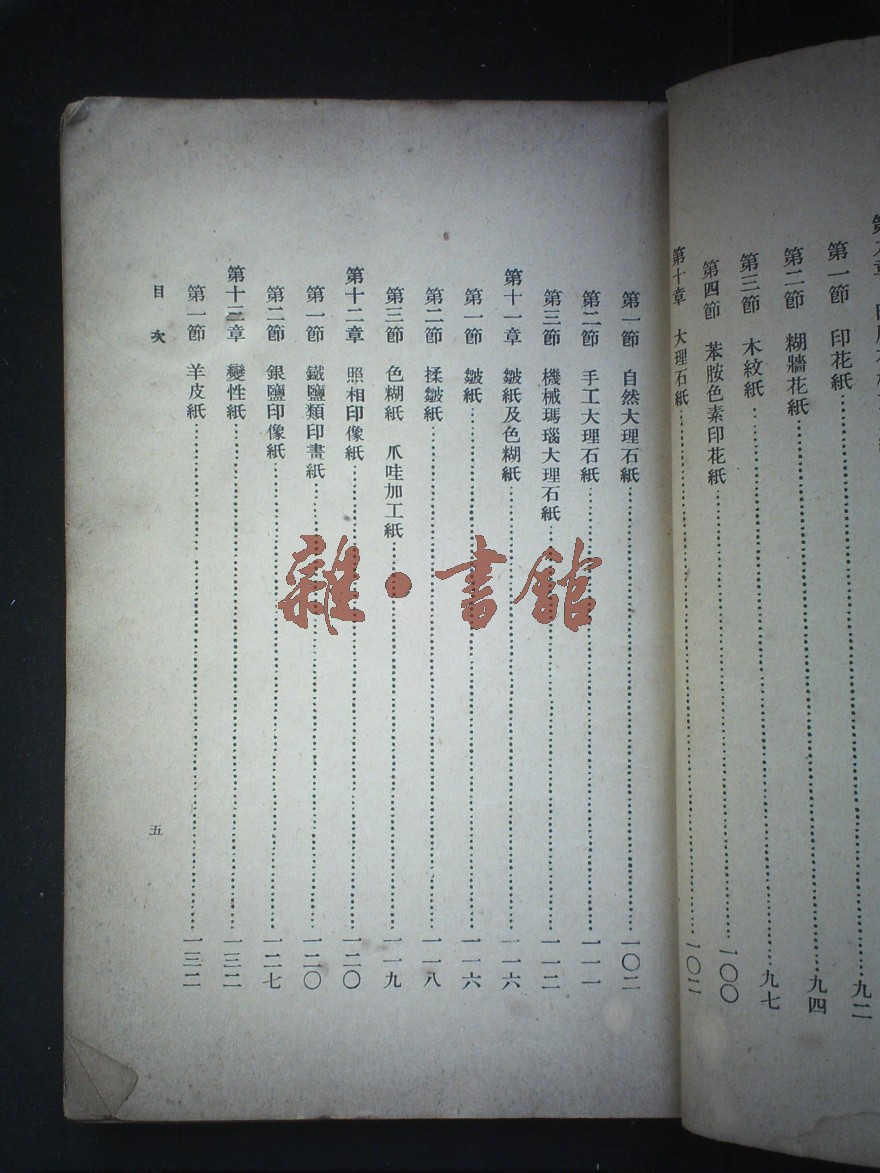 第一節 印花紙……九二
第二節 糊牆花紙……九四
第三節 木紋紙……九七
第四節 苯胺色素印花紙……一〇〇
第十章 大理石紙……一〇二
第一節 自然大理石紙……一〇二
第二節 手工大理石紙……一一一
第三節 機械瑪瑙大理石紙……一一二
第十一章 皺紙及色糊紙……一一六
第一節 皺紙……一一六
第二節 揉皺紙……一一八
第三節 色糊紙 爪哇加工紙……一一九
第十二章 照相印像紙……一二〇
第一節 鐵鹽類印畫紙……一二〇
第二節 銀鹽印像紙……一二七
第十三章 變性紙……一三二
第一節 羊皮紙……一三二
目次 五
雜·書館